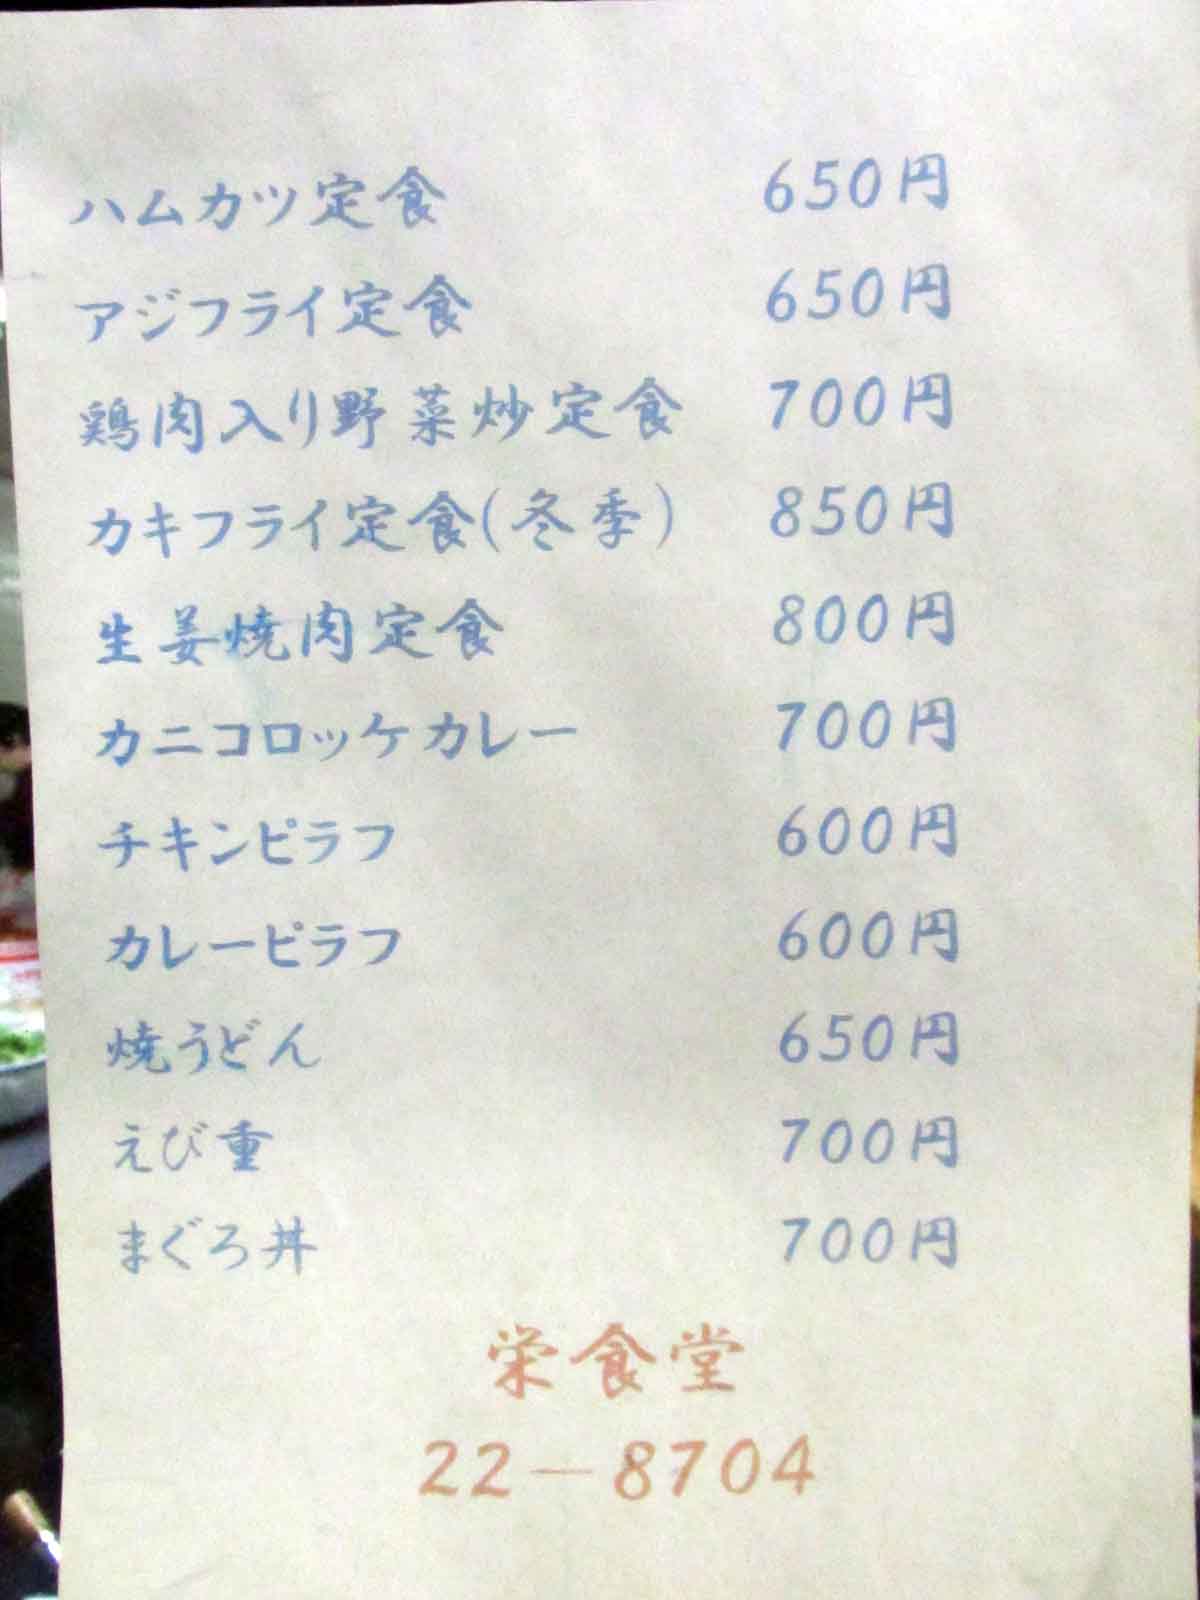 ハムカツ定食 650円
アジフライ定食 650円
鶏肉入り野菜炒定食 700円
カキフライ定食(冬季) 850円
生姜焼肉定食 800円
カニコロッケカレー 700円
チキンピラフ 600円
カレーピラフ 600円
焼うどん 650円
えび重 700円
まぐろ丼 700円
栄食堂
22-8704